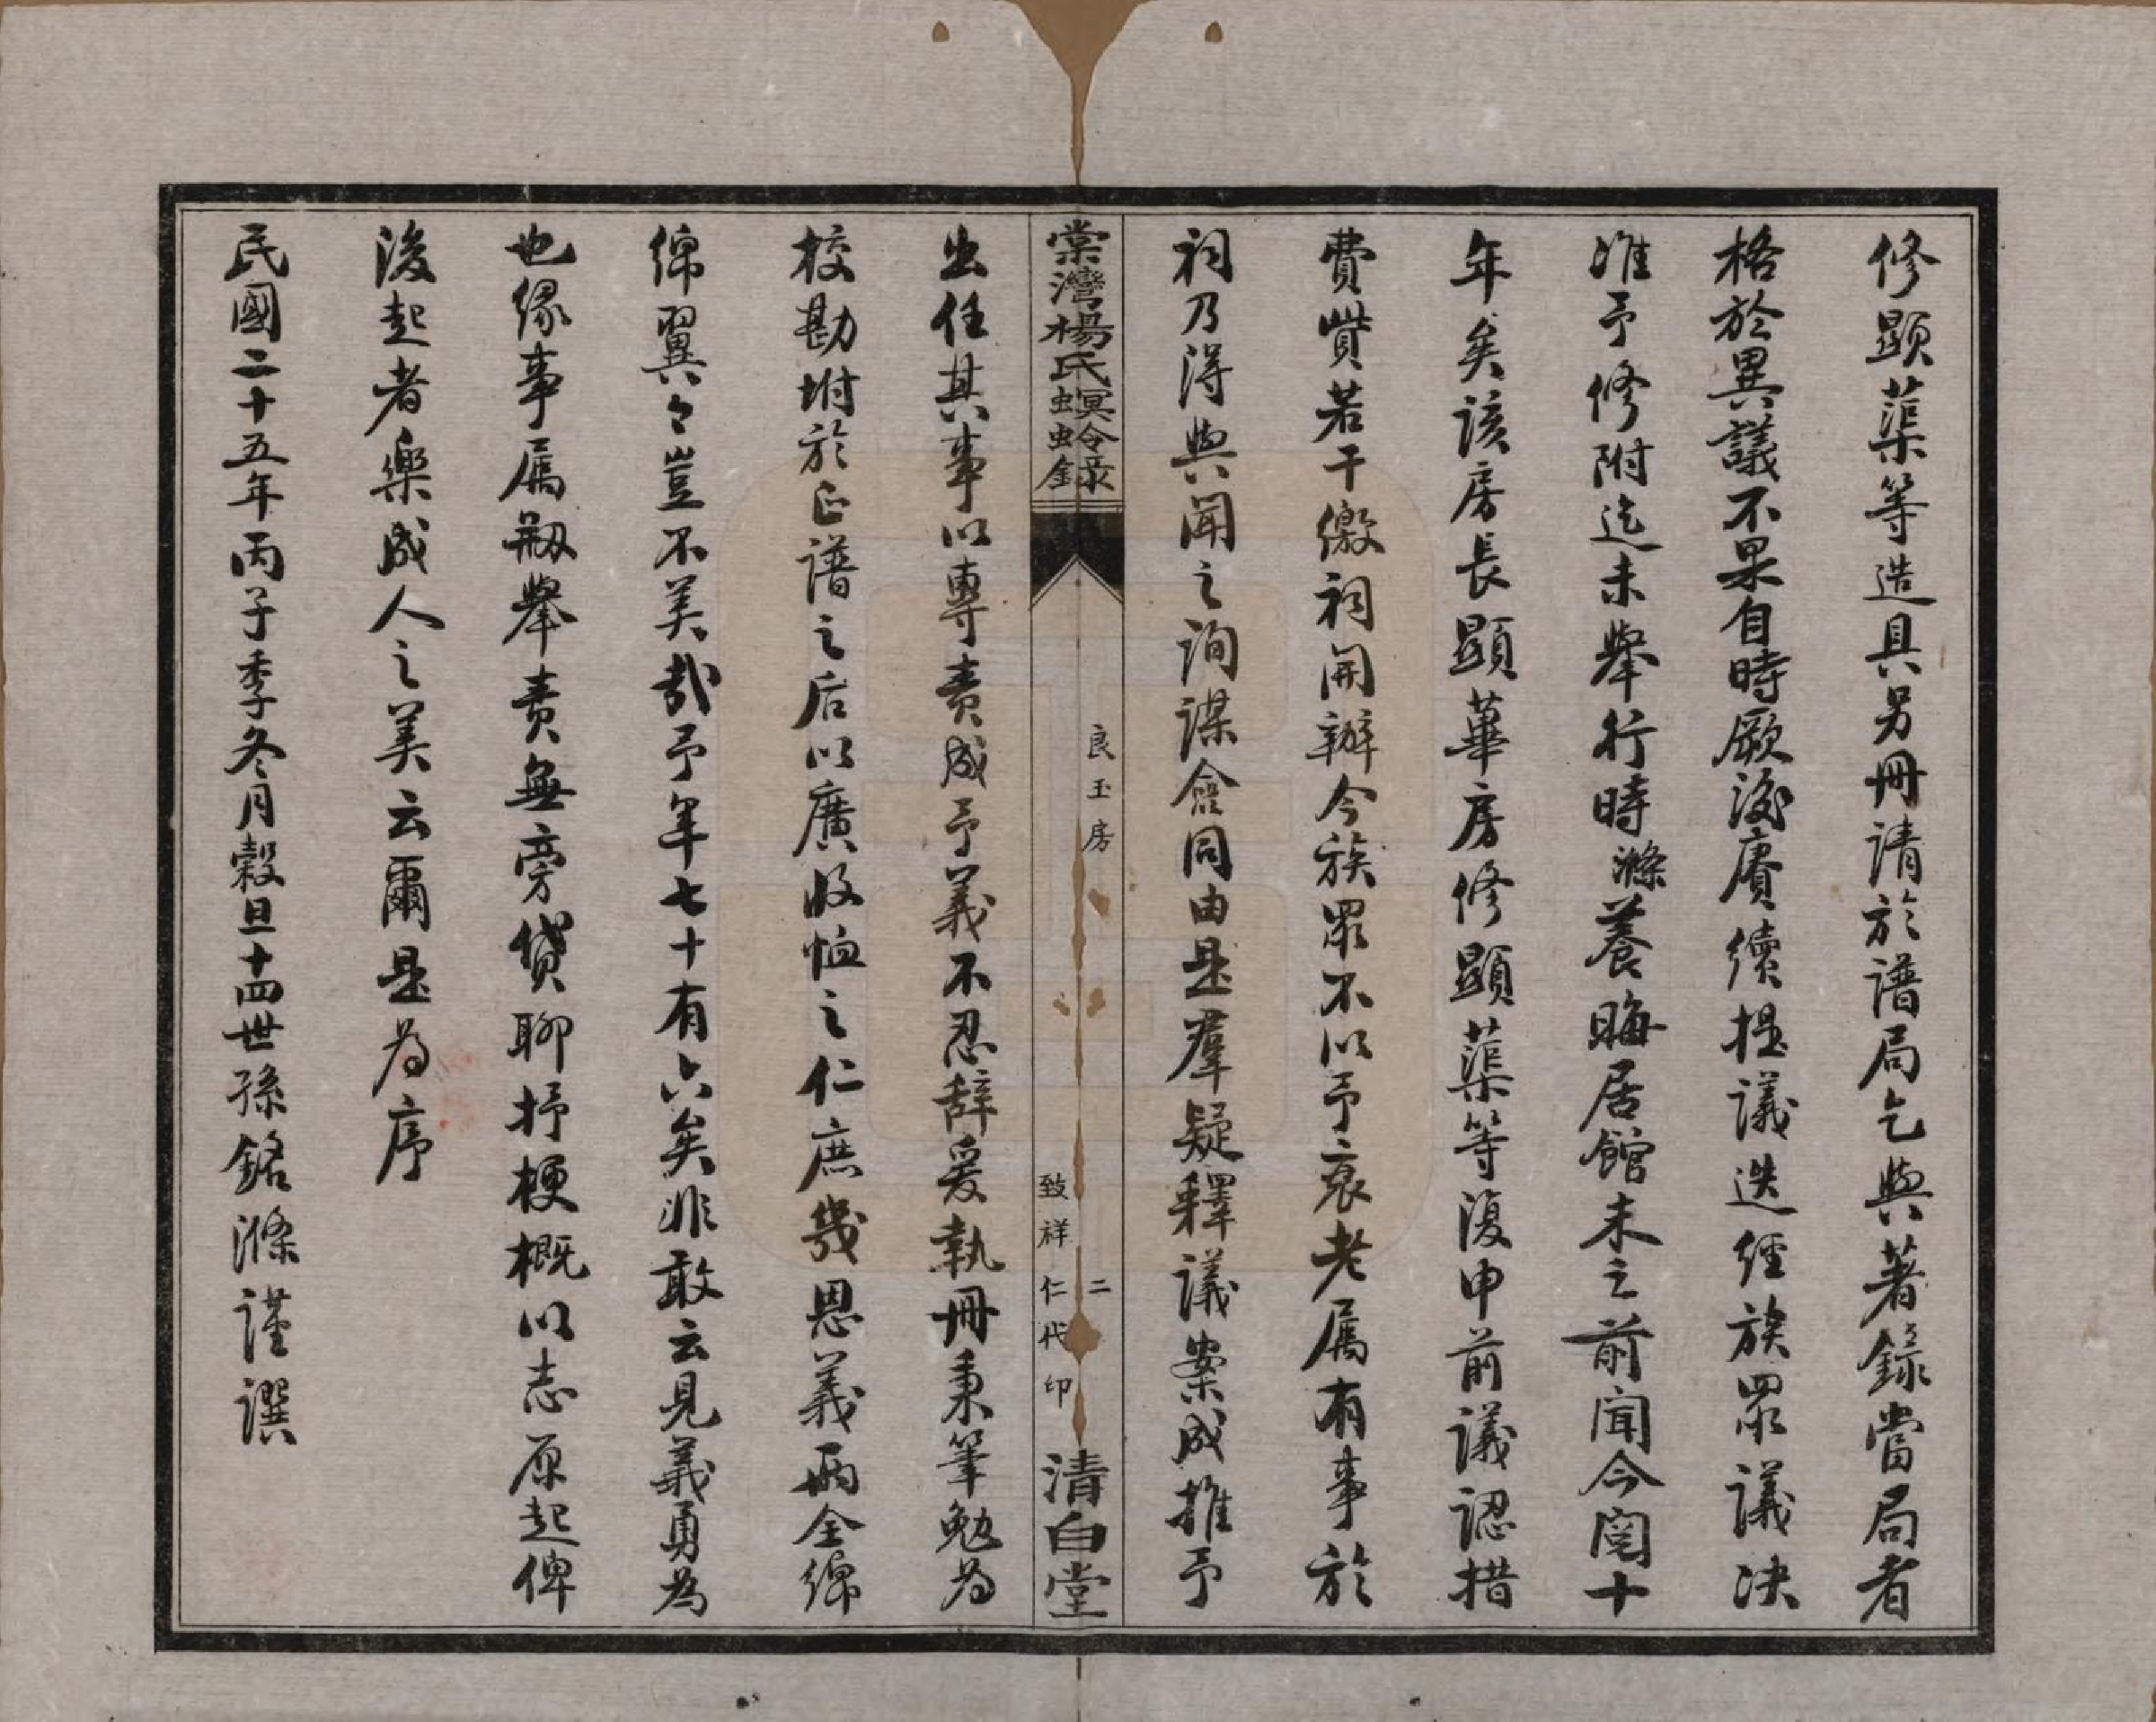 修顯蕖等造具另冊请於谱局乞與著錄當局者
格於異議不果自時厥後賡續提議迭經族眾議決
准予修附迄未舉行時滌養晦居館未之前聞今閱十
年矣该房長顯華房修顯蕖等復申前議認措
費貲若干繳祠開辦今族眾不以予衰老属有事於
祠乃得與聞之询謀僉同由是羣疑釋議案成推予
棠灣楊氏螟蛉錄
良玉房
二
致祥仁代印
清白堂
出任其事以專責成予義不忍辞爰執冊秉筆勉為
校勘坿於正谱之后以廣收恤之仁庶幾恩義兩全綿
綿翼々豈不美哉予年七十有六矣非敢云見義勇為
也缘事属剏舉责無旁貸聊抒梗概以志原起俾
後起者樂成人之美云爾是为序
民國二十五年丙子季冬月穀旦十四世孫銘滌謹譔